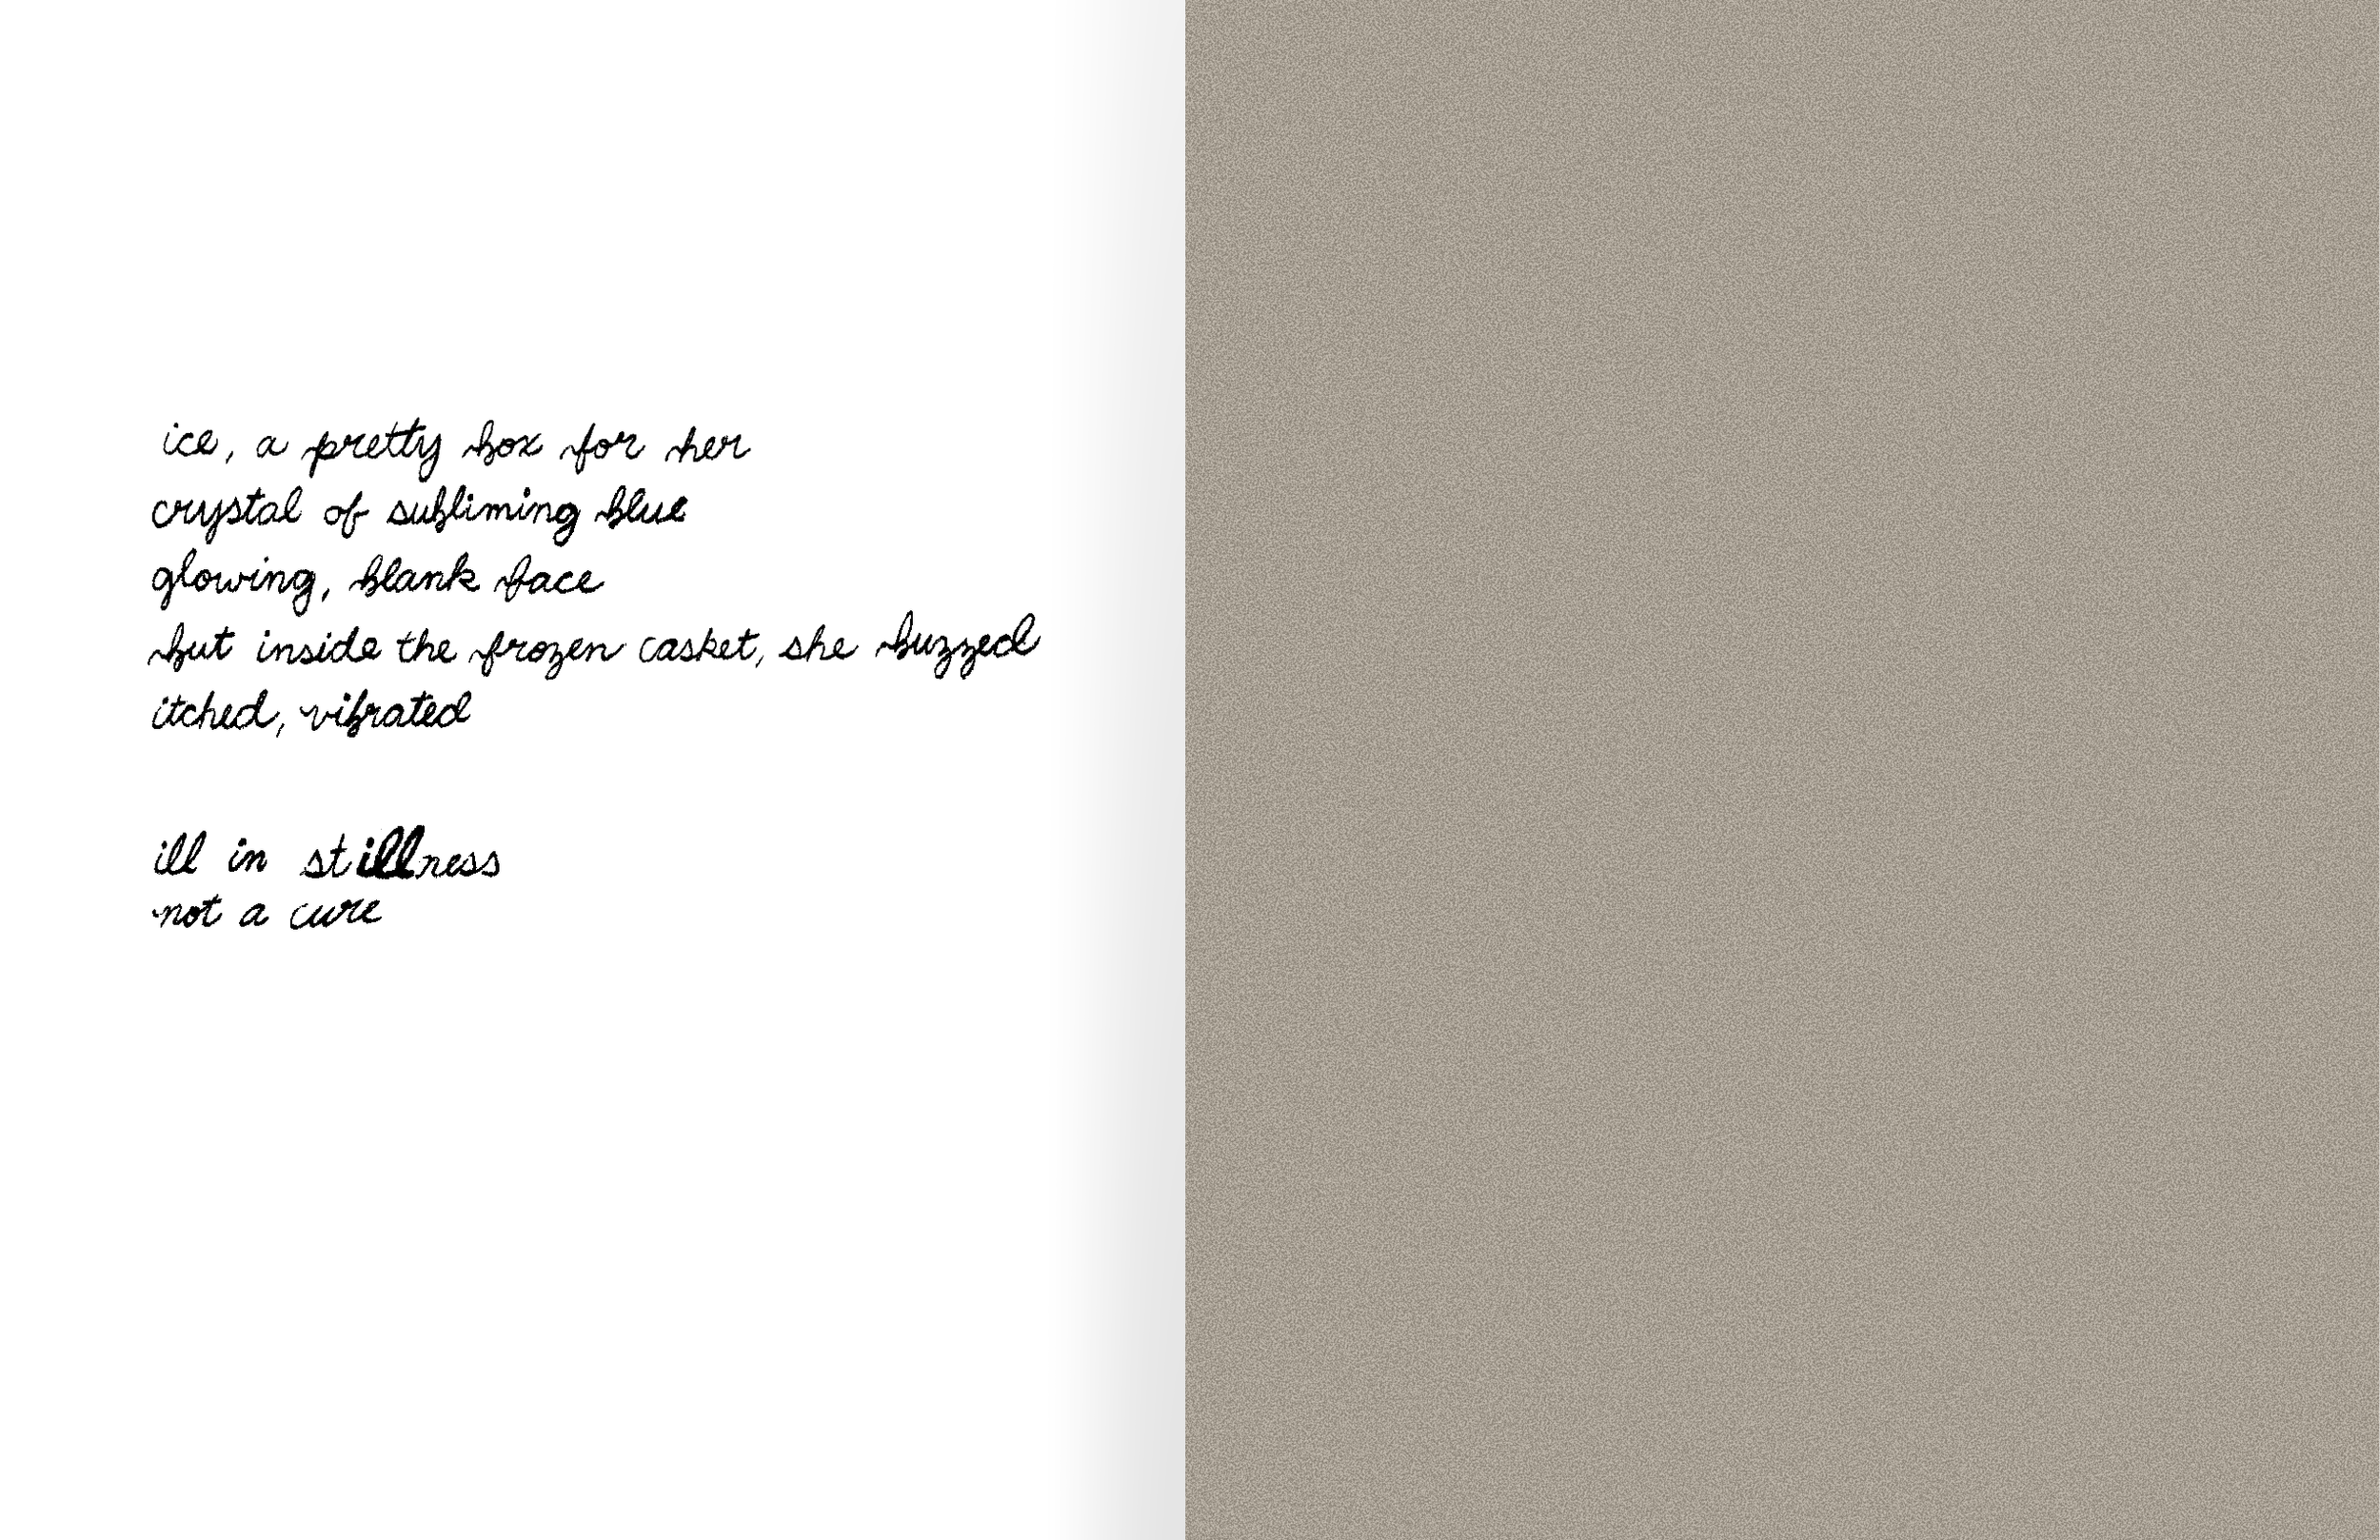 ice, a pretty box for her
crystal of subliming blue
glowing, blank face
but inside the frozen casket, she buzzed
itched, vibrated
ill in stillness
not a cure